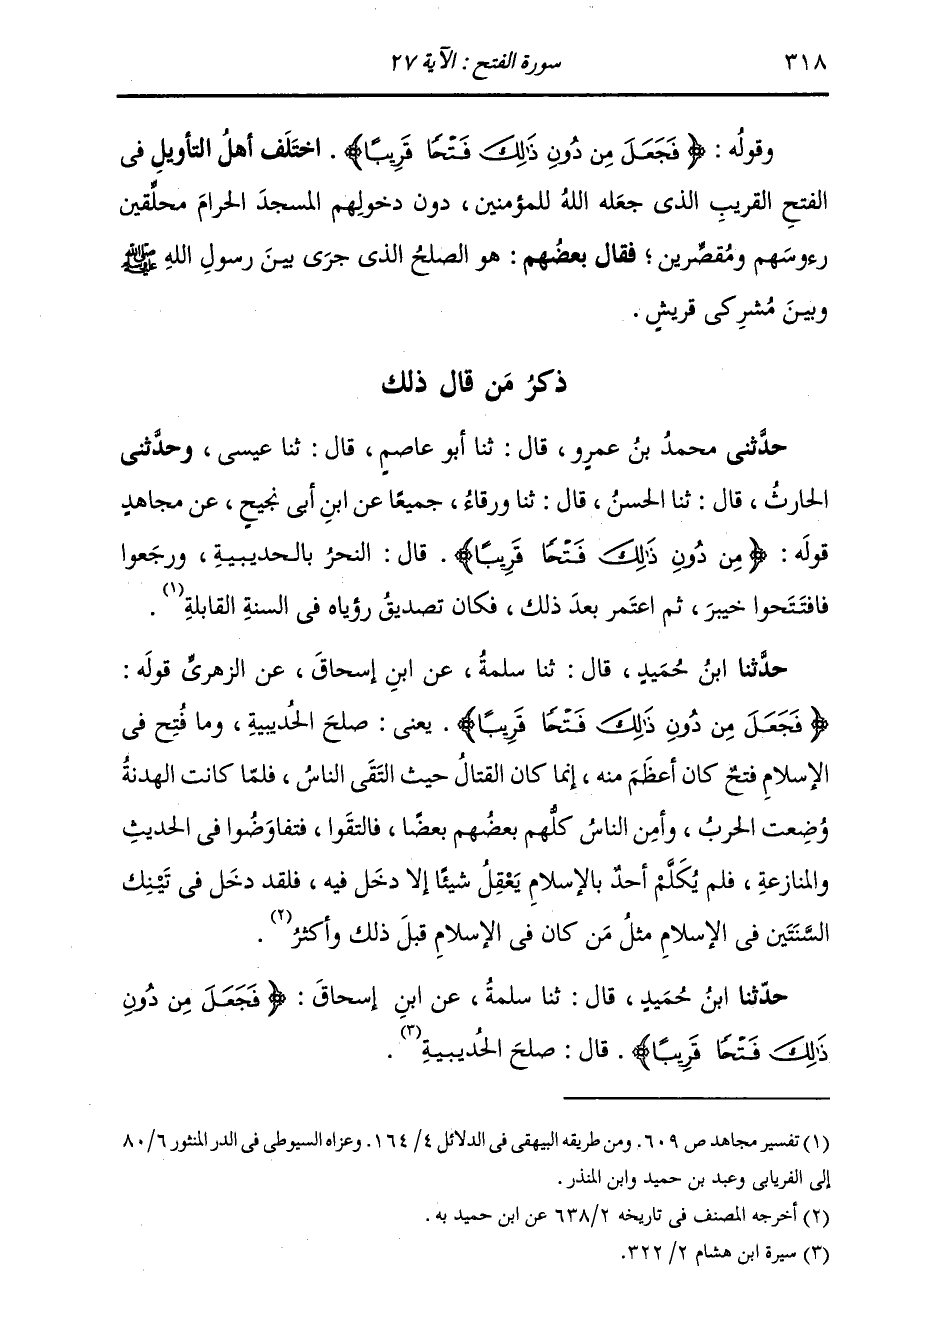 ٣١٨ سورة الفتح : الآية ٢٧
وقولُه : ﴿ فَجَعَلَ مِن دُونِ ذَٰلِكَ فَتْحًا قَرِيبًا﴾ . اختَلَف أهلُ التأويلِ فى
الفتحِ القريبِ الذى جعَله اللهُ للمؤمنين ، دون دخولِهم المسجدَ الحرامَ محلِّقين
رءوسَهم ومُقصِّرين ؛ فقال بعضُهم : هو الصلحُ الذى جرَى بينَ رسولِ اللهِ ﷺ
وبينَ مُشرِكى قريشٍ .
ذكرُ مَن قال ذلك
حدَّثنى محمدُ بنُ عمرٍو ، قال : ثنا أبو عاصمٍ ، قال : ثنا عيسى ، وحدَّثنى
الحارثُ ، قال : ثنا الحسنُ ، قال : ثنا ورقاءُ ، جميعًا عن ابنِ أبى نجيحٍ ، عن مجاهدٍ
قولَه : ﴿ مِن دُونِ ذَٰلِكَ فَتْحًا قَرِيبًا﴾ . قال : النحرُ بالحديبيةِ ، ورجَعوا
فافتَتَحوا خيبرَ ، ثم اعتَمر بعدَ ذلك ، فكان تصديقُ رؤياه فى السنةِ القابلةِ(١) .
حدَّثنا ابنُ حُمَيدٍ ، قال : ثنا سلمةُ ، عن ابنِ إسحاقَ ، عن الزهرىِّ قولَه :
﴿ فَجَعَلَ مِن دُونِ ذَٰلِكَ فَتْحًا قَرِيبًا﴾ . يعنى : صلحَ الحُديبيةِ ، وما فُتِح فى
الإسلامِ فتحٌ كان أعظَمَ منه ، إنما كان القتالُ حيث التَقَى الناسُ ، فلمّا كانت الهدنةُ
وُضِعت الحربُ ، وأمِن الناسُ كلُّهم بعضُهم بعضًا ، فالتقَوا ، فتفاوَضُوا فى الحديثِ
والمنازعةِ ، فلم يُكَلَّمْ أحدٌ بالإسلامِ يَعْقِلُ شيئًا إلا دخَل فيه ، فلقد دخَل فى تَيْنِك
السَّنَتَين فى الإسلامِ مثلُ مَن كان فى الإسلامِ قبلَ ذلك وأكثرُ(٢) .
حدّثنا ابنُ حُمَيدٍ ، قال : ثنا سلمةُ ، عن ابنِ إسحاقَ : ﴿ فَجَعَلَ مِن دُونِ
ذَٰلِكَ فَتْحًا قَرِيبًا﴾ . قال : صلحَ الحُديبيةِ(٣) .
(١) تفسير مجاهد ص ٦٠٩. ومن طريقه البيهقى فى الدلائل ٤/ ١٦٤. وعزاه السيوطى فى الدر المنثور ٨٠/٦
إلى الفريابى وعبد بن حميد وابن المنذر .
(٢) أخرجه المصنف فى تاريخه ٦٣٨/٢ عن ابن حميد به .
(٣) سيرة ابن هشام ٢/ ٣٢٢.